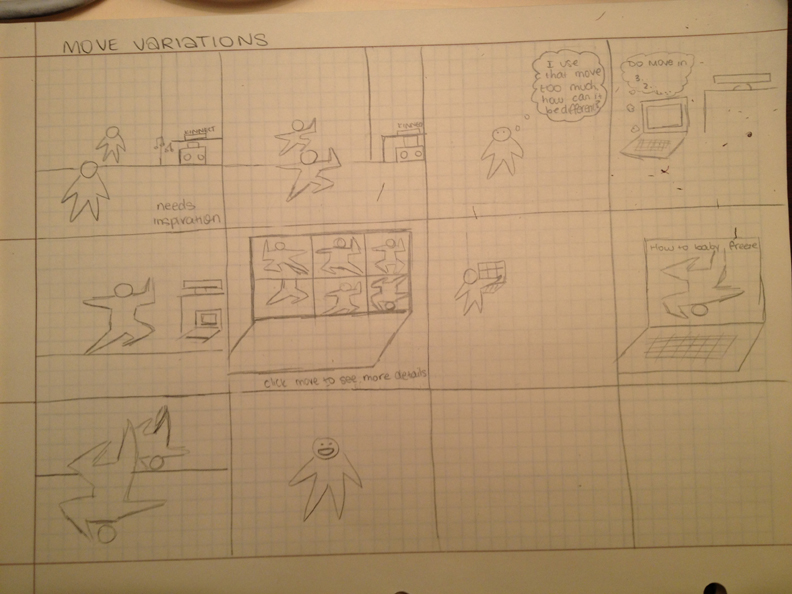 MOVE VARIATIONS
needs
inspiration
I use
that move
too much
how can it
be different
Do Move in
3,
2..
click move to see more details
How to baby freeze